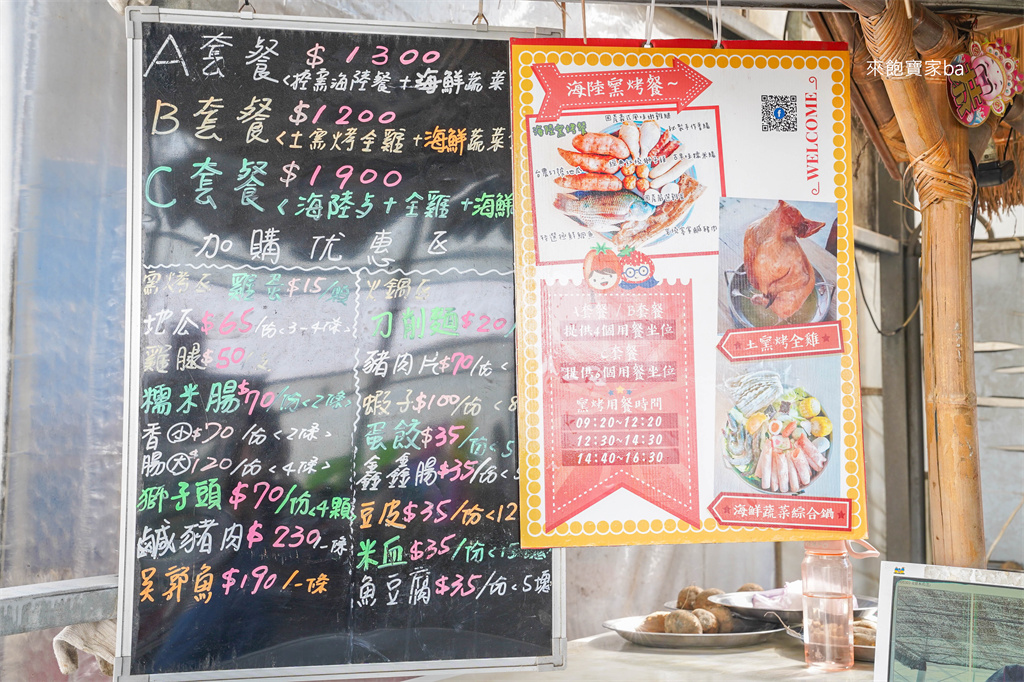 A套餐 $1300
<控窯海陸餐+海鮮蔬菜
B套餐 $1200
<土窯烤全雞+海鮮蔬菜
C套餐 $1900
<海陸与+全雞+海鮮
加購优惠區
窯烤區 雞蛋$15/顆
地瓜$65/份<3-4條>
雞腿$50/支
糯米腸$70/份<2條>
香腸 小$70/份<2條>
大$120/份<4條>
獅子頭$70/份<4顆
鹹豬肉$230/一條
吳郭魚$190/一條
火鍋區
刀削麵$20/
豬肉片$70/份<
蝦子$100/份<8
蛋餃$35/份<5
鑫鑫腸$35/份<5
豆皮$35/份<12
米血$35/份<15
魚豆腐$35/份<5塊
海陸窯烤餐~
海陸窯烤餐
WELCOME
A套餐 / B套餐
提供4個用餐坐位
C套餐
提供6個用餐坐位
窯烤用餐時間
09:20~12:20
12:30~14:30
14:40~16:30
土窯烤全雞
海鮮蔬菜綜合鍋
來飽寶家ba